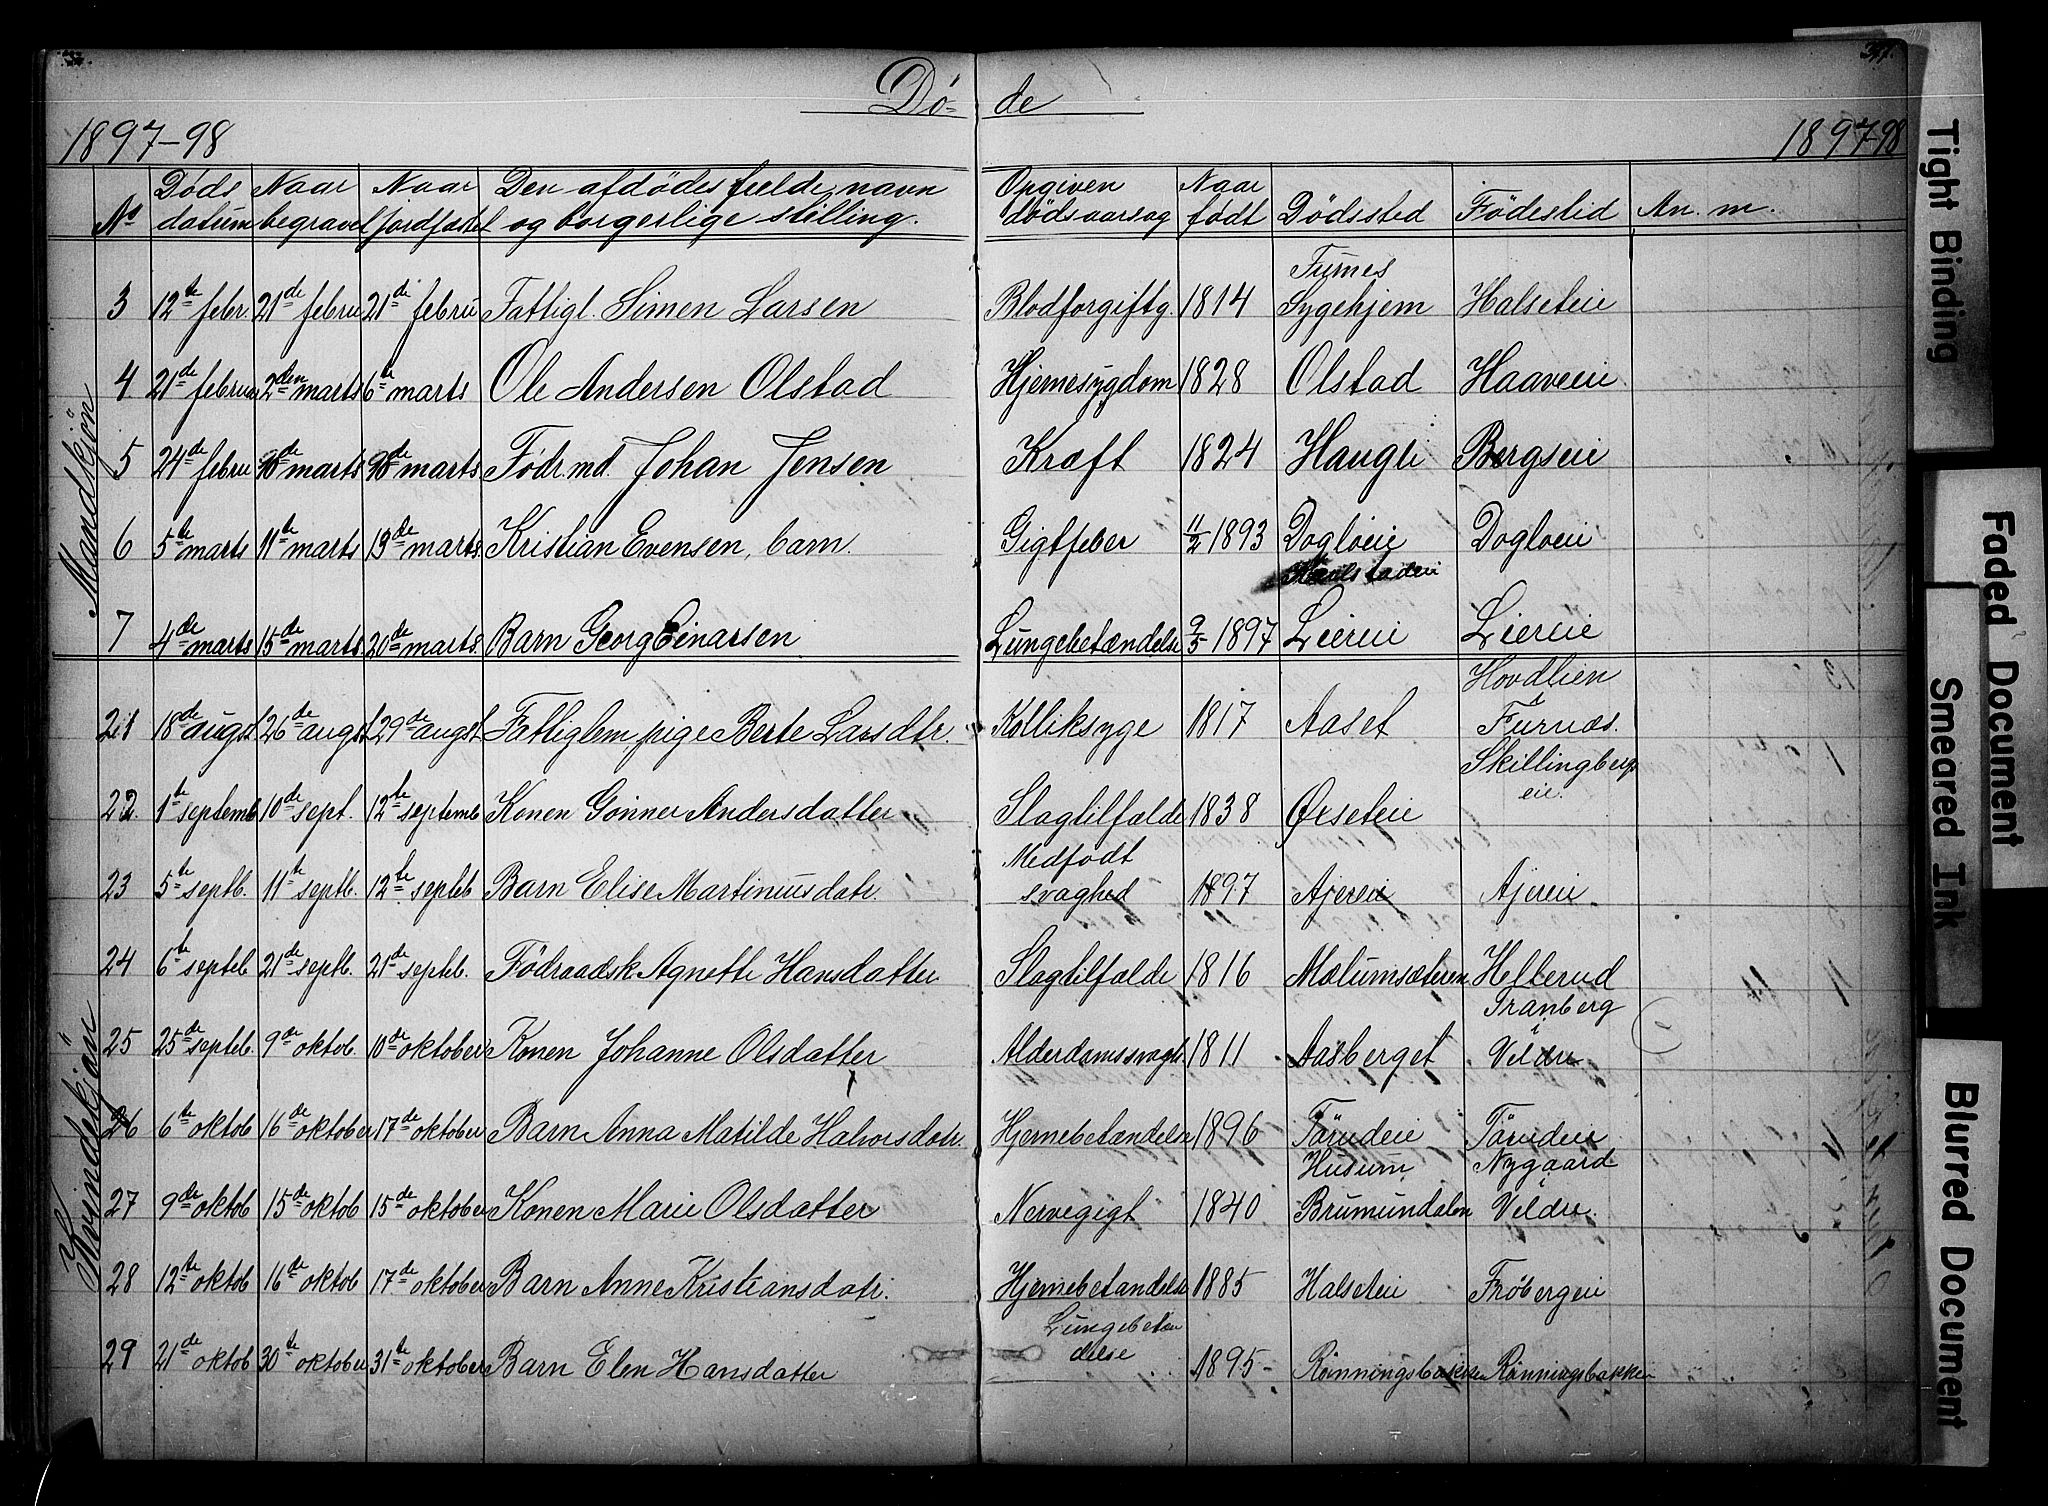 Dö- de
1897-98 1897-98
No Döds datum Naar begravet Naar jordfæstet Den afdödes fulde navn og borgerlige stilling. Opgiven dödsaarsag Naar födt Dödssted Födested An. m.
Mandskjön
Furnes
3 12te febr. 21de febru 21de febru Fattigl. Simen Larsen Blodforgiftg. 1814 Sygehjem Halseteie
4. 21de februa 2den marts 6te marts Ole Andersen Olstad Hjernesygdom 1828 Olstad Haaveeie
5 24de febru marts marts. Födr.md. Johan Jensen Kræft 1824 Haugli Bergseie
6 5te marts 11te marts 13de marts. Kristian Evensen, barn. Gigtfeber 11/2 1893 Dogloeie Dogloeie
7 4de marts 15de marts 20de marts. Barn Georg Einarsen Lungebetændelse 9/5 1897 Liereie Liereie
Kvindekjön
Hovdlien
21 18de augst 26de augst 29de augst. Fattiglem, pige Berte Larsdtr. Kolliksyge 1817 Aaset i Furnæs.
Skillingbergs
22. 1te septemb 10de sept. 12te septemb Konen Gönner Andersdatter Slagtilfælde 1838 Ørseteie eie.
Medfödt
23 5te septb. 11te septb. 12te septeb Barn Elise Martinusdatr. svaghed 1897 Ajereie Ajereie
24 6te septeb 21de septb. 21de septeb. Födraadsk Agnette Hansdatter Slagtilfælde 1816 Mælumsæteren Helterud
Granberg
25 25de septeb 9de oktob. 10de oktober Konen Johanne Olsdatter Alderdomssvagh. 1811 Aasberget i Veldre
26 6te oktob 16de oktober 17de oktober Barn Anna Matilde Halvorsdatr. Hjernebetændelse 1896 Törudeie Törudeie
Husum, Nygaard
27 9de oktob 15de oktob 15de oktober Konen Marie Olsdatter Nervegigt 1840 Brumundalen i Veldre.
28 12te oktob 16de oktob 17de oktober Barn Anne Kristiansdatr. Hjernebetændelse 1885 Halseteie Fröbergeie
Lungebetæn
29 21de oktob 30te oktober 31te oktober Barn Elen Hansdatter delse 1895- Rönningsbakken Rönningsbakken
Tight Binding
Faded Document
Smeared Ink
Blurred Document